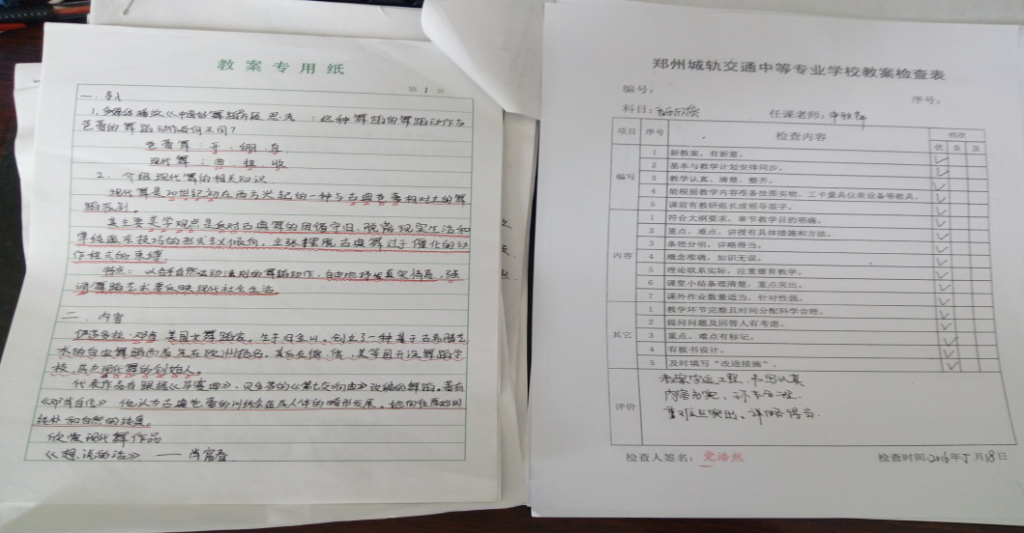 教案专用纸
第 1 页
一、导入
1. 多媒体播放《中国好舞蹈》片段 思考：这种舞蹈的舞蹈动作与
芭蕾的舞蹈动作有何不同？
芭蕾舞：开、绷、直
现代舞：曲、扭、收
2. 介绍现代舞的相关知识
现代舞是20世纪初在西方兴起的一种与古典芭蕾相对立的舞
蹈派别。
其主要美学观点是反对古典舞的因循守旧、脱离现实生活和
单纯追求技巧的形式主义倾向，主张摆脱古典舞过于僵化的动
作程式的束缚
特点：以合乎自然运动法则的舞蹈动作，自由地抒发真实情感，强
调舞蹈艺术要反映现代社会生活
二、内容
伊莎多拉·邓肯 美国女舞蹈家，生于旧金山，创立了一种基于古希腊艺
术的自由舞蹈而首先在欧洲扬名。其后在德、俄、美等国开设舞蹈学
校，成为现代舞的创始人。
代表作品有根据《马赛曲》、贝多芬的《第七交响曲》改编的舞蹈。著有
《邓肯自传》
欣赏现代舞作品
《想说的话》——
郑州城轨交通中等专业学校教案检查表
编号：
序号：
科目：
任课老师：
项目 序号 检查内容 档次
优 良 及
编写
1 新教案，有新意。
2 基本与教学计划安排同步。
3 教学认真，清楚，整齐。
4 能根据教学内容准备挂图实物、工卡量具仪表设备等教具。
5 课前有教研组长或领导签字。
内容
1 符合大纲要求，章节教学目的明确。
2 重点、难点、讲授有具体措施和方法。
3 条理分明，详略得当。
4 概念准确，知识无误。
5 理论联系实际，注重德育教学。
6 课堂小结条理清楚，重点突出。
7 课外作业数量适当，针对性强。
其它
1 教学环节完整且时间分配科学合理。
2 提问问题及回答人有考虑。
3 重点、难点有标记。
4 有板书设计。
5 及时填写“改进措施”。
评价
教案字迹工整，书写认真
内容充实，环节合理
重难点突出，详略得当.
检查人签名：党浩然
检查时间：2016年5月18日